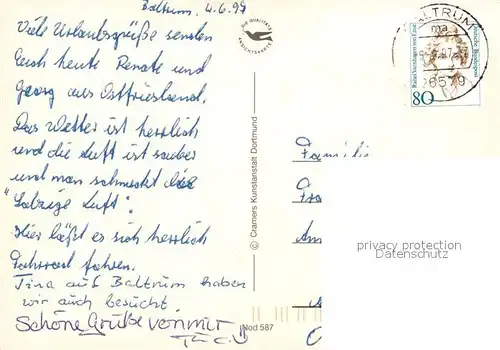 Baltrum, 4.6.97
Viele Urlaubsgrüße senden
Euch heute Renate und
Georg aus Ostfriesland.
Das Wetter ist herrlich
und die Luft ist sauber
und man schmeckt die
"Salzige Luft".
Hier läßt es sich herrlich
Fahrrad fahren.
Tina auf Baltrum haben
wir auch besucht
Schöne Grüße von mir
Tina
DIE QUALITÄTS
ANSICHTSKARTE
© Cramers Kunstanstalt Dortmund
Mod 587
BALTRUM
26579
Rahel Varnhagen von Ense
Deutsche Bundespost
80
Familie
privacy protection
Datenschutz